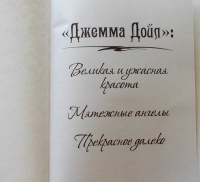 «Джемма Дойл»:
Великая и ужасная
красота
Мятежные ангелы
Прекрасное далеко